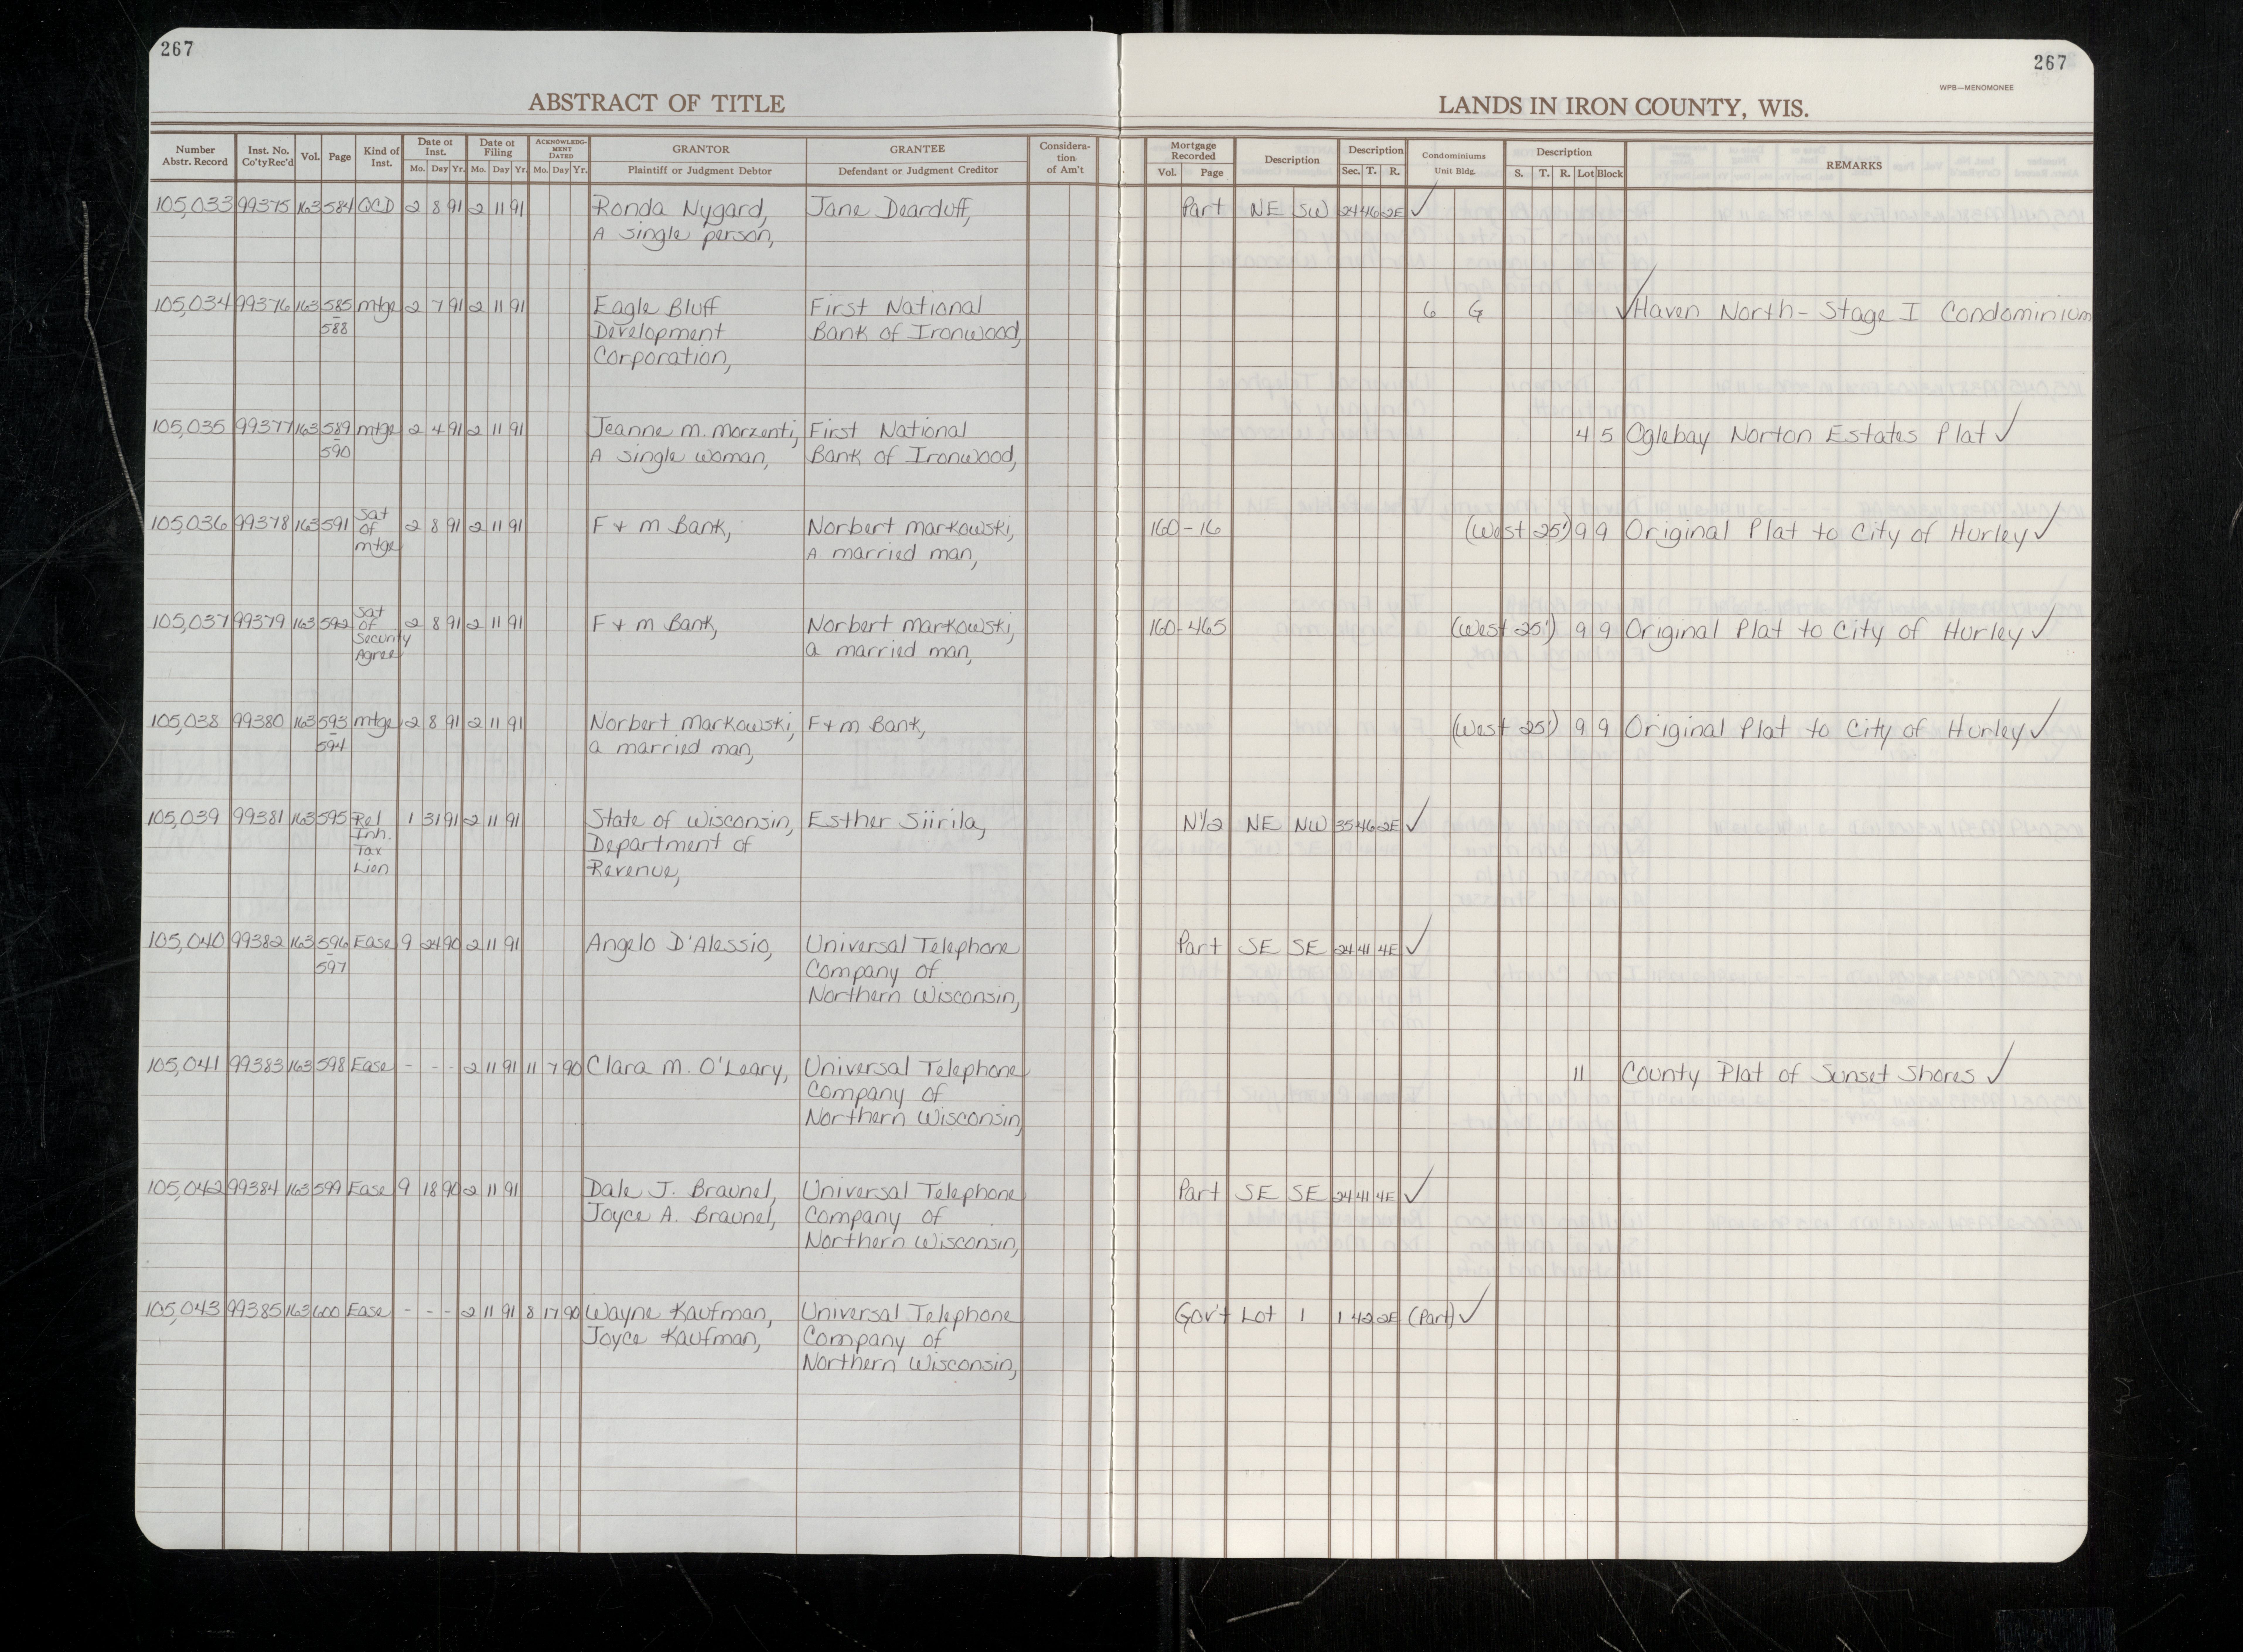 267
267
WPB—MENOMONEE
ABSTRACT OF TITLE
LANDS IN IRON COUNTY, WIS.
Number Abstr. Record | Inst. No. Co'tyRec'd | Vol. | Page | Kind of Inst. | Date of Inst. Mo. Day Yr. | Date of Filing Mo. Day Yr. | ACKNOWLEDG-MENT DATED Mo. Day Yr. | GRANTOR Plaintiff or Judgment Debtor | GRANTEE Defendant or Judgment Creditor | Considera-tion of Am't | Mortgage Recorded Vol. Page | Description | Description Sec. T. R. | Condominiums Unit Bldg. | Description S. T. R. Lot Block | REMARKS
105,033 99375 163 584 QCD 2 8 91 2 11 91 Ronda Nygard, Jane Dearduff, Part NE SW 24 46 2E ✓
A single person,
105,034 99376 163 585 mtge 2 7 91 2 11 91 Eagle Bluff First National 6 G ✓ Haven North - Stage I Condominium
- 588 Development Bank of Ironwood,
Corporation,
105,035 99377 163 589 mtge 2 4 91 2 11 91 Jeanne M. Morzenti, First National 4 5 Oglebay Norton Estates Plat ✓
- 590 A single woman, Bank of Ironwood,
105,036 99378 163 591 Sat 2 8 91 2 11 91 F + M Bank, Norbert Markowski, 160 - 16 (West 25') 9 9 Original Plat to City of Hurley ✓
of
mtge A married man,
105,037 99379 163 592 Sat 2 8 91 2 11 91 F + M Bank, Norbert Markowski, 160 - 465 (West 25') 9 9 Original Plat to City of Hurley ✓
of
Security a married man,
Agree
105,038 99380 163 593 mtge 2 8 91 2 11 91 Norbert Markowski, F + M Bank, (West 25') 9 9 Original Plat to City of Hurley ✓
- 594 a married man,
105,039 99381 163 595 Rel 1 31 91 2 11 91 State of Wisconsin, Esther Siirila, N½ NE NW 35 46 2E ✓
Inh. Department of
Tax
Lien Revenue,
105,040 99382 163 596 Ease 9 24 90 2 11 91 Angelo D'Alessio, Universal Telephone Part SE SE 24 41 4E ✓
- 597 Company of
Northern Wisconsin,
105,041 99383 163 598 Ease - - - 2 11 91 11 7 90 Clara M. O'Leary, Universal Telephone 11 County Plat of Sunset Shores ✓
Company of
Northern Wisconsin,
105,042 99384 163 599 Ease 9 18 90 2 11 91 Dale J. Braunel, Universal Telephone Part SE SE 24 41 4E ✓
Joyce A. Braunel, Company of
Northern Wisconsin,
105,043 99385 163 600 Ease - - - 2 11 91 8 17 90 Wayne Kaufman, Universal Telephone Gov't Lot 1 1 42 2E (Part) ✓
Joyce Kaufman, Company of
Northern Wisconsin,